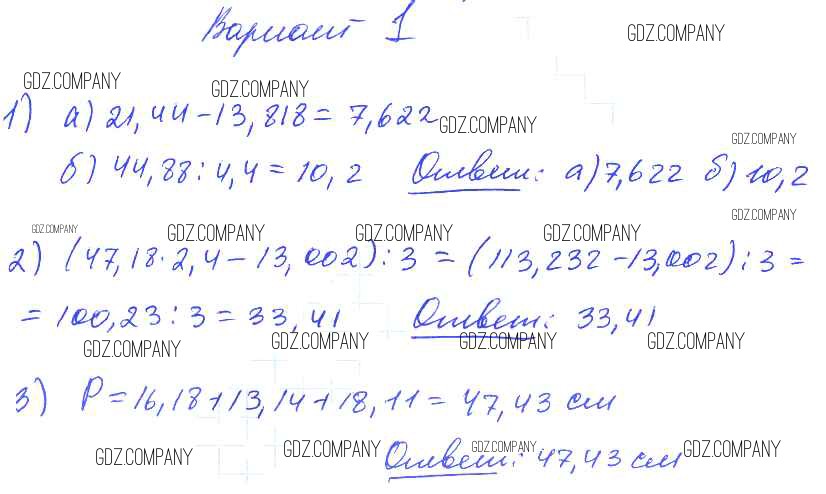 Вариант 1
GDZ.COMPANY
GDZ.COMPANY GDZ.COMPANY
1) а) 21,44 - 13,818 = 7,622
GDZ.COMPANY GDZ.COMPANY
б) 44,88 : 4,4 = 10,2 Ответ: а) 7,622 б) 10,2
GDZ.COMPANY GDZ.COMPANY GDZ.COMPANY GDZ.COMPANY GDZ.COMPANY
2) (47,18 · 2,4 - 13,002) : 3 = (113,232 - 13,002) : 3 =
= 100,23 : 3 = 33,41 Ответ: 33,41
GDZ.COMPANY GDZ.COMPANY GDZ.COMPANY GDZ.COMPANY
3) P = 16,18 + 13,14 + 18,11 = 47,43 см
GDZ.COMPANY GDZ.COMPANY GDZ.COMPANY GDZ.COMPANY
Ответ: 47,43 см